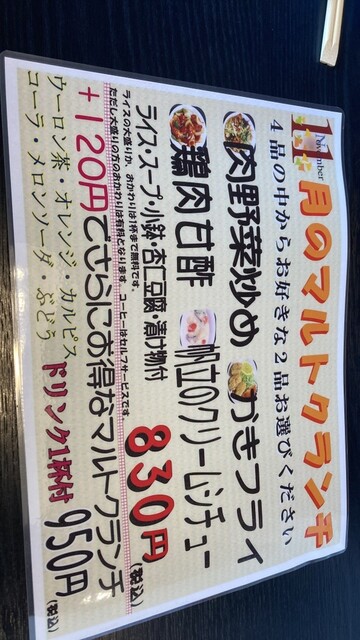 11月のマルトクランチ
November
4品の中からお好きな2品お選びください
肉野菜炒め
かきフライ
鶏肉甘酢
帆立のクリームシチュー
ライス・スープ・小鉢・杏仁豆腐・漬け物付
830円(税込)
ライスの大盛りか、おかわりは1杯まで無料です。
ただし大盛りの方のおかわりは有料となります コーヒーはセルフサービスです。
+120円でさらにお得なマルトクランチ
ウーロン茶・オレンジ・カルピス
コーラ・メロンソーダ・ぶどう
ドリンク1杯付 950円(税込)